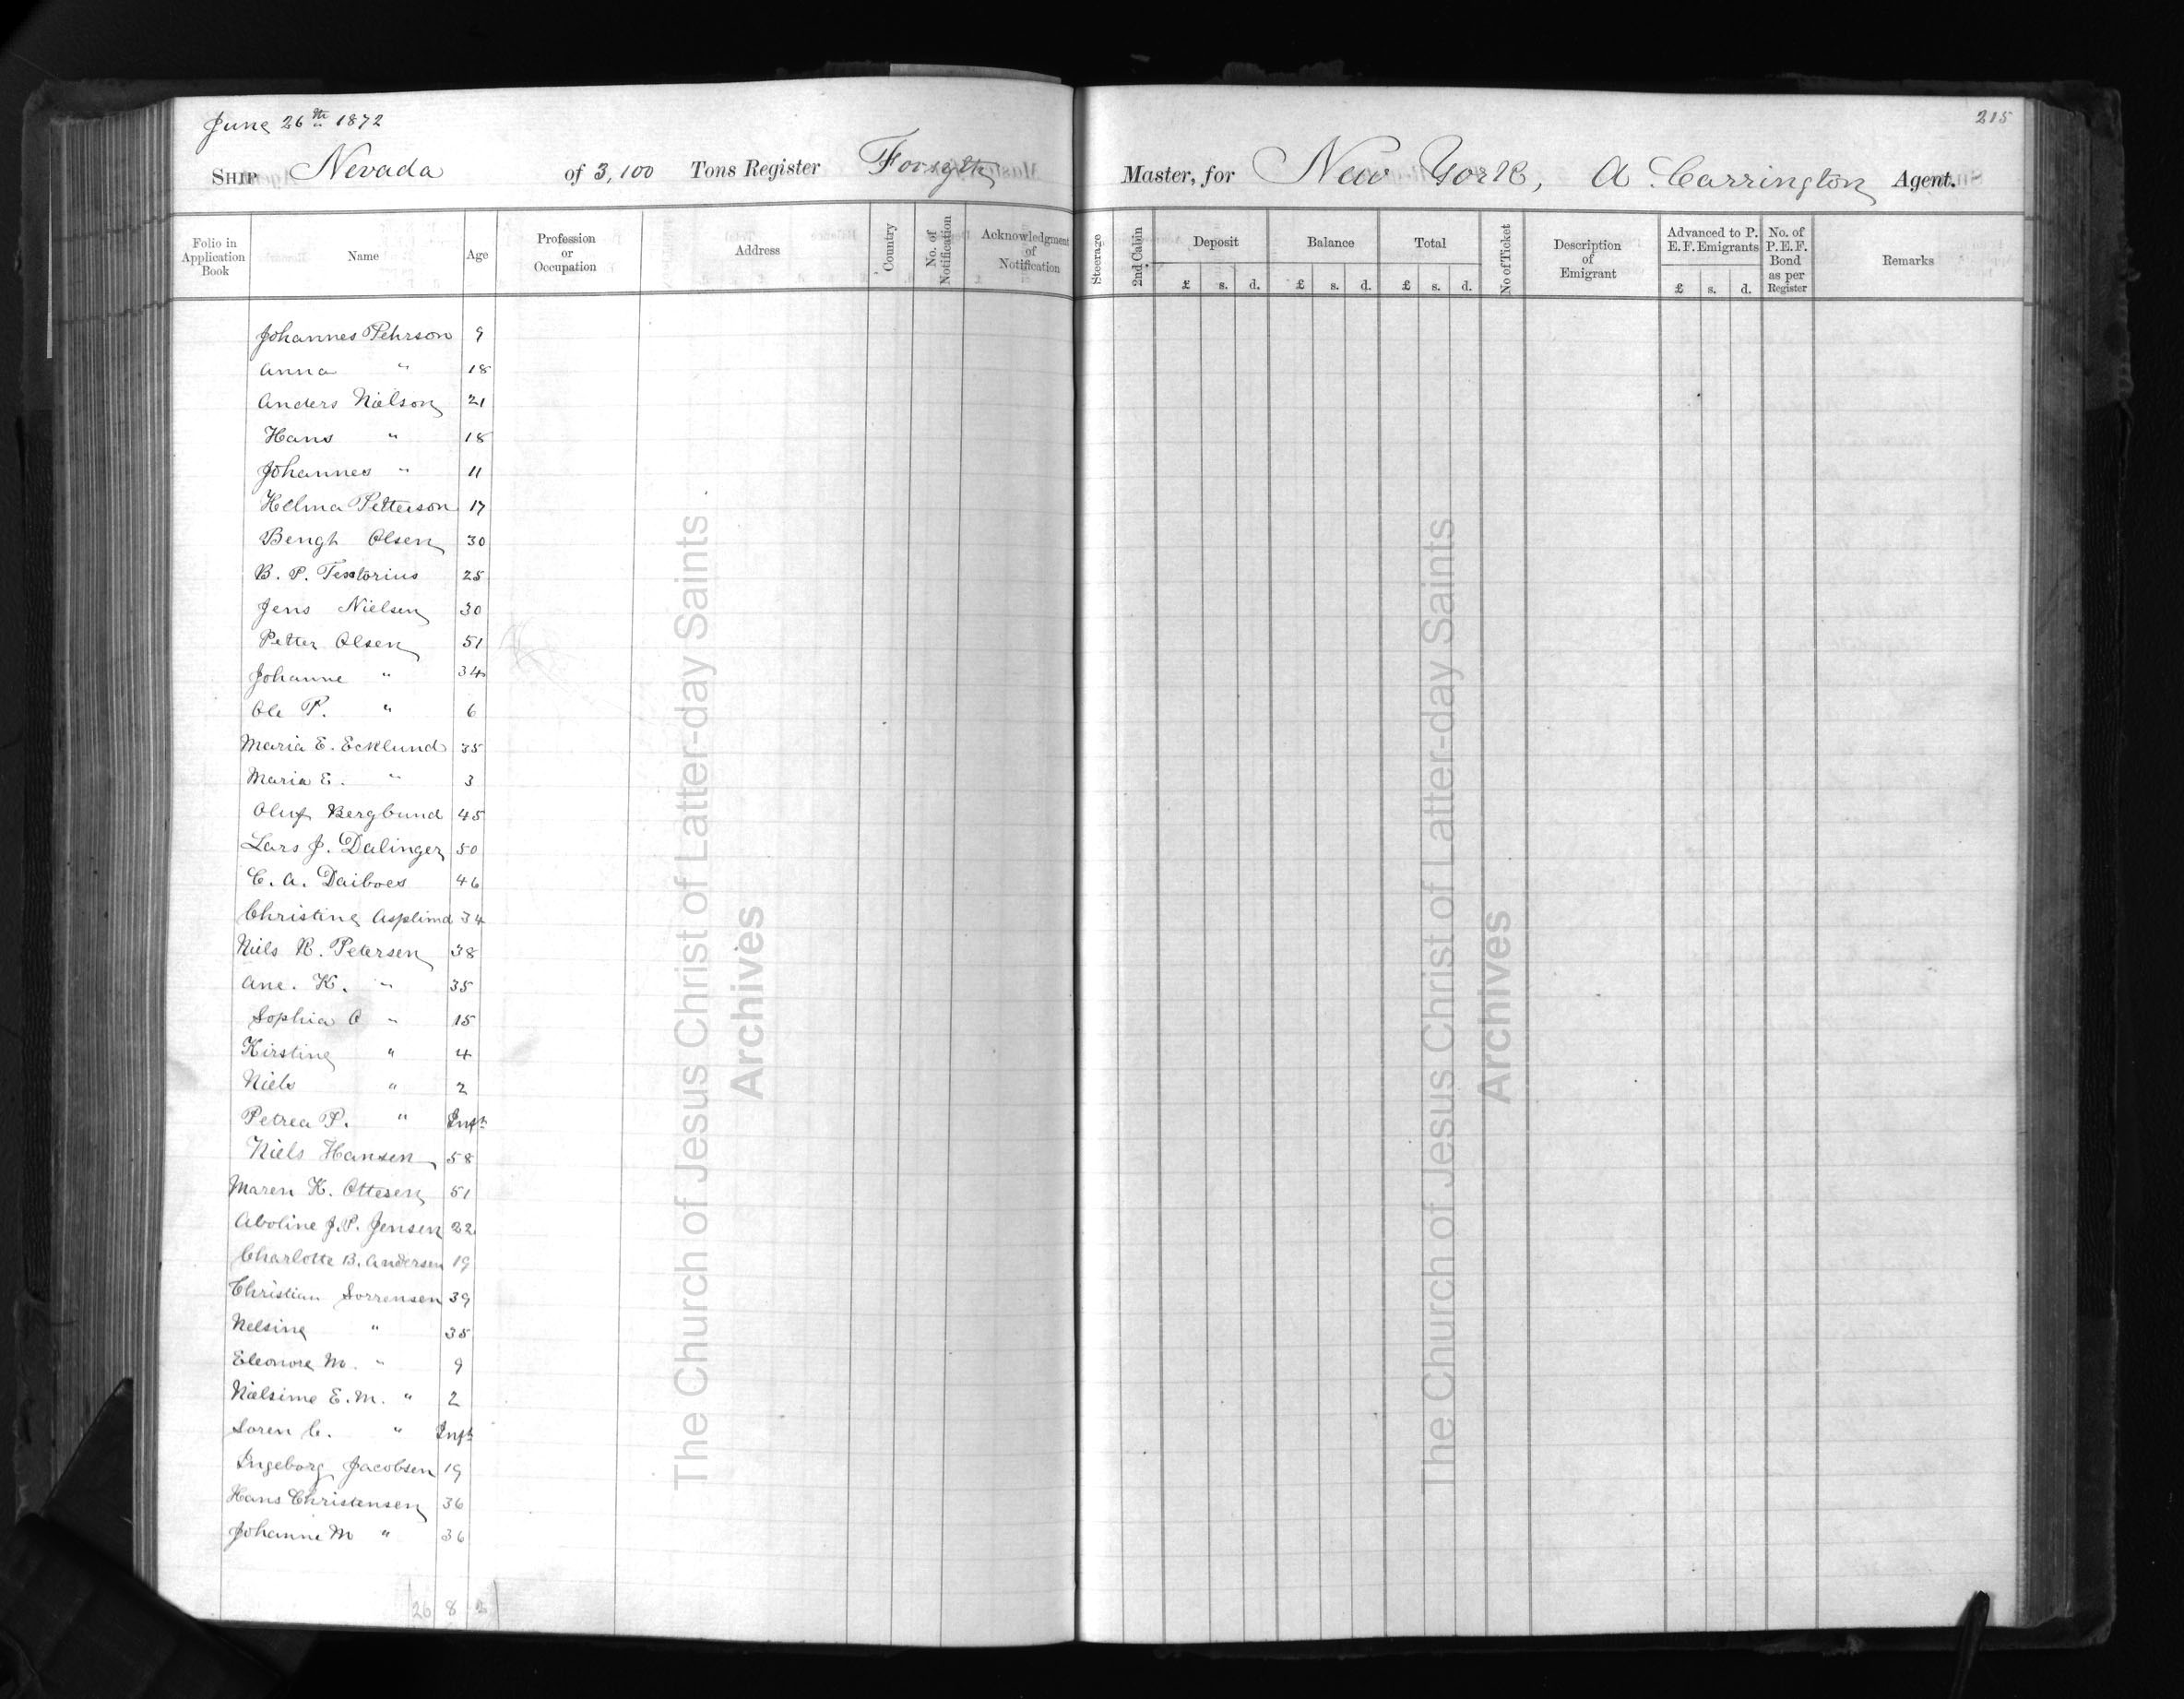 June 26th 1872
215
Ship Nevada of 3,100 Tons Register Forsyth Master, for New York, A Carrington Agent.
Folio in Application Book
Name
Age
Profession or Occupation
Address
Country
No. of Notification
Acknowledgment of Notification
Steerage
2nd Cabin
Deposit
£ s. d.
Balance
£ s. d.
Total
£ s. d.
No of Ticket
Description of Emigrant
Advanced to P. E. F. Emigrants
£ s. d.
No. of P. E. F. Bond as per Register
Remarks
Johannes Pehrson 9
Anna " 18
Anders Nielson 21
Hans " 18
Johannes " 11
Hellma Petterson 17
Bengt Olsen 30
B. P. Textorius 25
Jens Nielsen 30
Petter Olsen 51
Johanne " 34
Ole P. " 6
Maria E. Ecklund 35
Maria E. " 3
Oluf Berglund 45
Lars J. Dalinger 50
C. A. Daiboes 46
Christine Asplund 34
Niels R. Petersen 38
Ane. K. " 35
Sophia C " 15
Kirstine " 4
Niels " 2
Petrea P. " Inft
Niels Hansen 58
Maren K. Ottesen 51
Aboline J. P. Jensen 22
Charlotte B. Andersen 19
Christian Sorrensen 39
Nelsine " 35
Eleonore M. " 9
Nielsime E. M. " 2
Soren C. " Inft
Ingeborg Jacobsen 19
Hans Christensen 36
Johanne M " 36
26 8 2
The Church of Jesus Christ of Latter-day Saints
Archives
The Church of Jesus Christ of Latter-day Saints
Archives